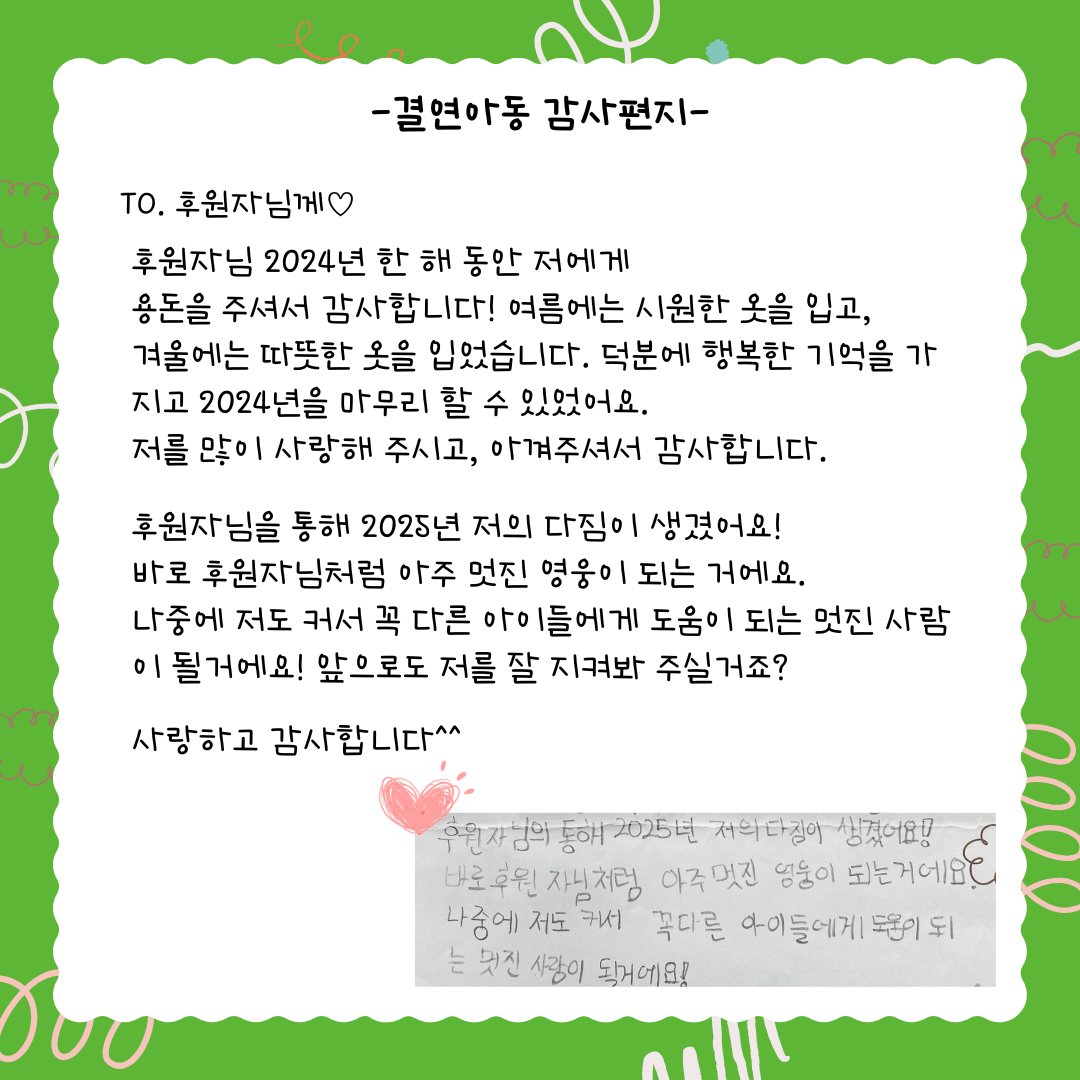 -결연아동 감사편지-
TO. 후원자님께♡
후원자님 2024년 한 해 동안 저에게
용돈을 주셔서 감사합니다! 여름에는 시원한 옷을 입고,
겨울에는 따뜻한 옷을 입었습니다. 덕분에 행복한 기억을 가
지고 2024년을 마무리 할 수 있었어요.
저를 많이 사랑해 주시고, 아껴주셔서 감사합니다.
후원자님을 통해 2025년 저의 다짐이 생겼어요!
바로 후원자님처럼 아주 멋진 영웅이 되는 거에요.
나중에 저도 커서 꼭 다른 아이들에게 도움이 되는 멋진 사람
이 될거에요! 앞으로도 저를 잘 지켜봐 주실거죠?
사랑하고 감사합니다^^
후원자님의 통해 2025년 저의 다짐이 생겼어요!
바로 후원 자님처럼 아주 멋진 영웅이 되는거에요.
나중에 저도 커서 꼭 다른 아이들에게 도움이 되
는 멋진 사람이 될거에요!